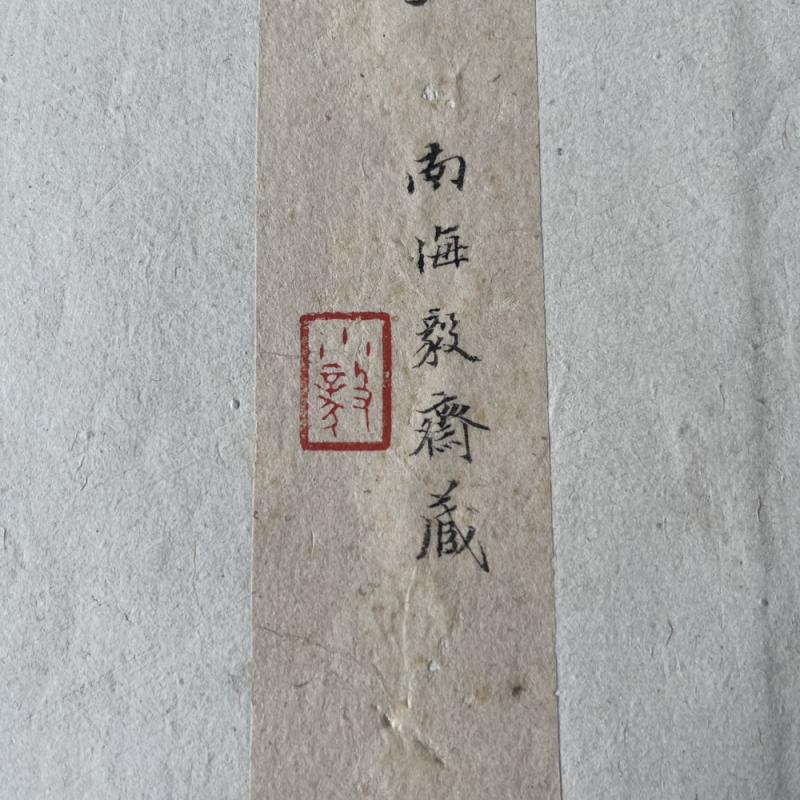 南海毅齋藏
小毅